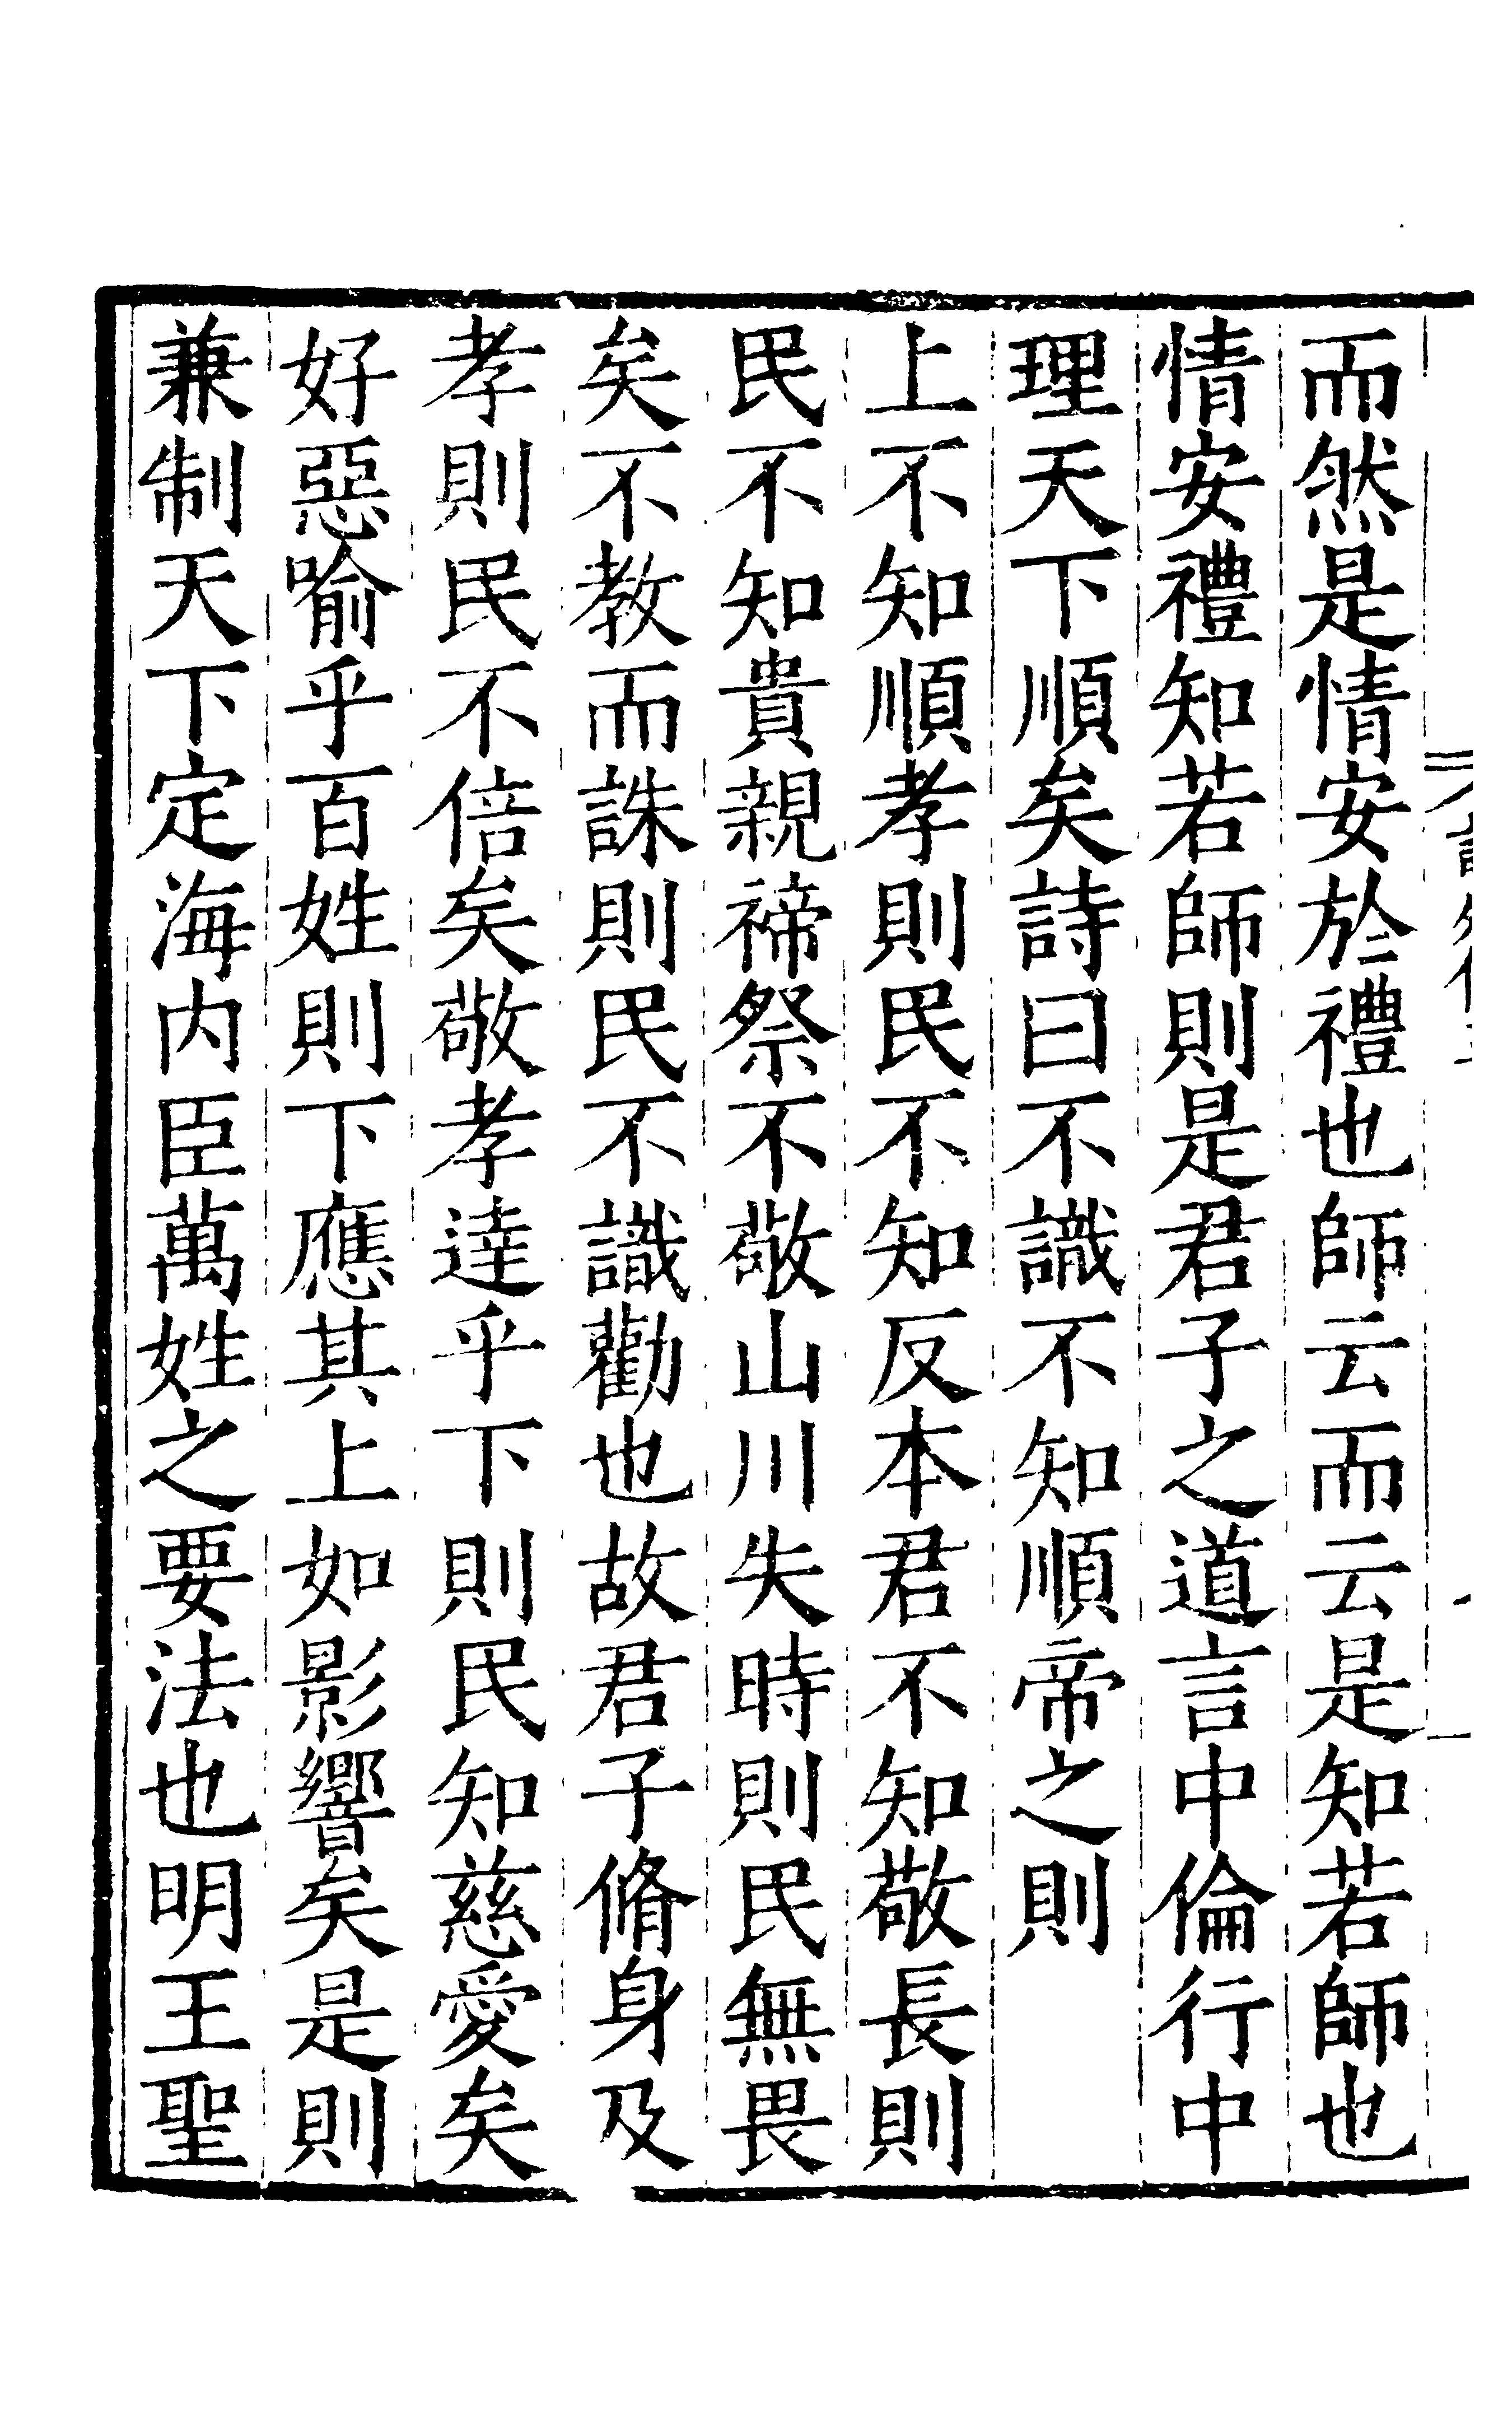 而然是情安於禮也師云而云是知若師也
情安禮知若師則是君子之道言中倫行中
理天下順矣詩曰不識不知順帝之則
上不知順孝則民不知反本君不知敬長則
民不知貴親禘祭不敬山川失時則民無畏
矣不教而誅則民不識勸也故君子脩身及
孝則民不倍矣敬孝達乎下則民知慈愛矣
好惡喻乎百姓則下應其上如影響矣是則
兼制天下定海內臣萬姓之要法也明王聖